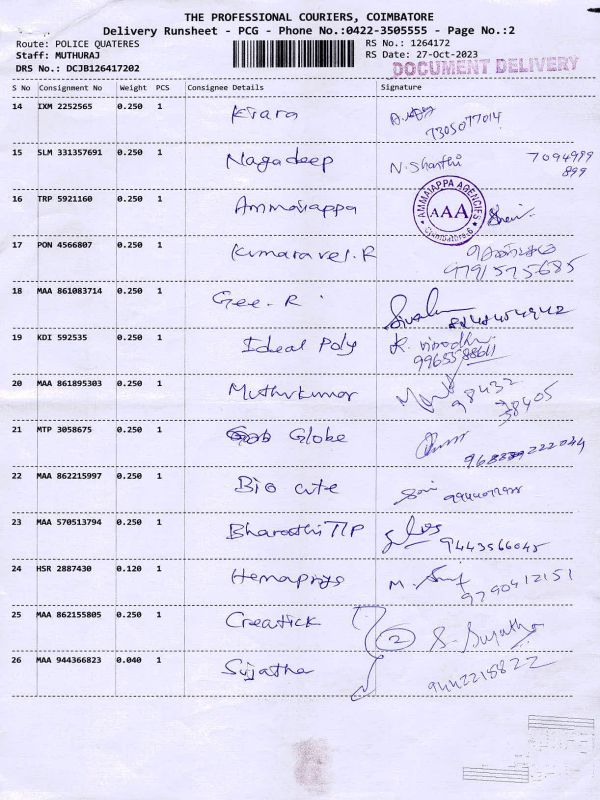 THE PROFESSIONAL COURIERS, COIMBATORE
Delivery Runsheet - PCG - Phone No.:0422-3505555 - Page No.:2
Route: POLICE QUATERES
RS No.: 1264172
Staff: MUTHURAJ
RS Date: 27-Oct-2023
DRS No.: DCJB126417202
DOCUMENT DELIVERY
S No Consignment No Weight PCS Consignee Details Signature
14 IXM 2252565 0.250 1 Kiara
7305077014
15 SLM 331357691 0.250 1 Nagadeep N. Shanthi 7094999
899
16 TRP 5921160 0.250 1 Ammaiappa
AMMAIAPPA AGENCIES
AAA
Coimbatore-6
17 PON 4566807 0.250 1 Kumaravel.R
9791575685
18 MAA 861083714 0.250 1 Gee. R
19 KDI 592535 0.250 1 Ideal Poly R. Vinodh
9965588611
20 MAA 861895303 0.250 1 Muthukumar 98432
38405
21 MTP 3058675 0.250 1 Globe
22 MAA 862215997 0.250 1 Bio cute
23 MAA 570513794 0.250 1 Bharathi TIP
9443566045
24 HSR 2887430 0.120 1 Hemapriya M.
9790412151
25 MAA 862155805 0.250 1 Creatick 2 S. Sujatha
26 MAA 944366823 0.040 1 Sujatha 9442218822